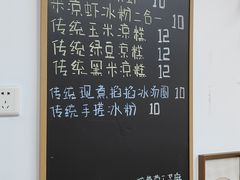 米凉虾冰粉二合一 10
传统玉米凉糕 12
传统绿豆凉糕 12
传统黑米凉糕 12
传统现煮掐掐冰汤圆 10
传统手搓冰粉 10